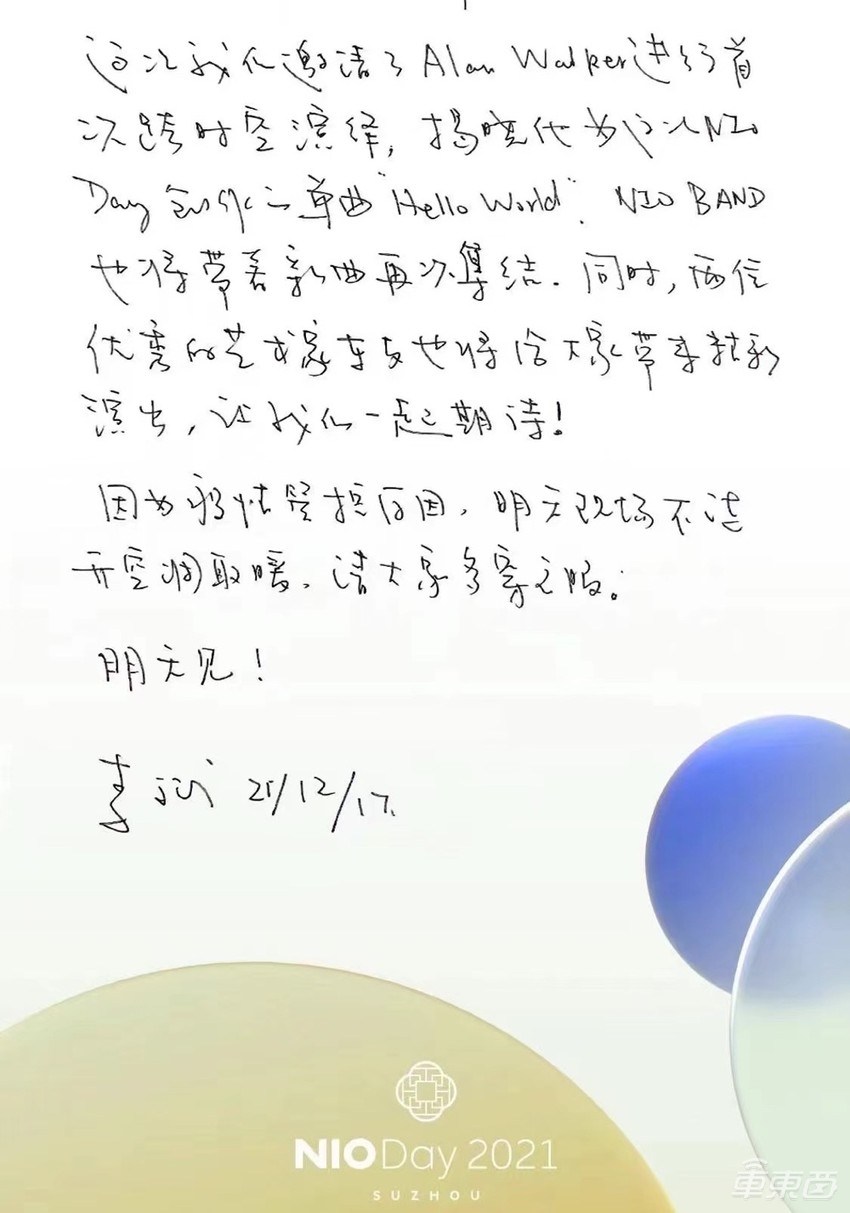 这次我们邀请了Alan Walker进行了首
次跨时空演绎，揭晓他为这次NIO
Day创作的单曲"Hello World". NIO BAND
也将带着新曲再次集结. 同时, 两位
优秀的艺术家车友也将给大家带来精彩
演出, 让我们一起期待!
因为疫情管控原因, 明天现场不让
开空调取暖, 请大家多穿衣服。
明天见!
李斌 21/12/17.
NIO Day 2021
SUZHOU
車東西